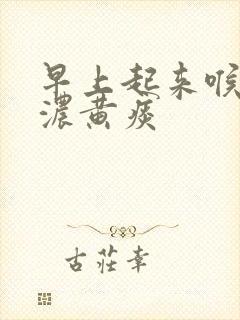 早上起来喉
浓黄痰
古莊幸